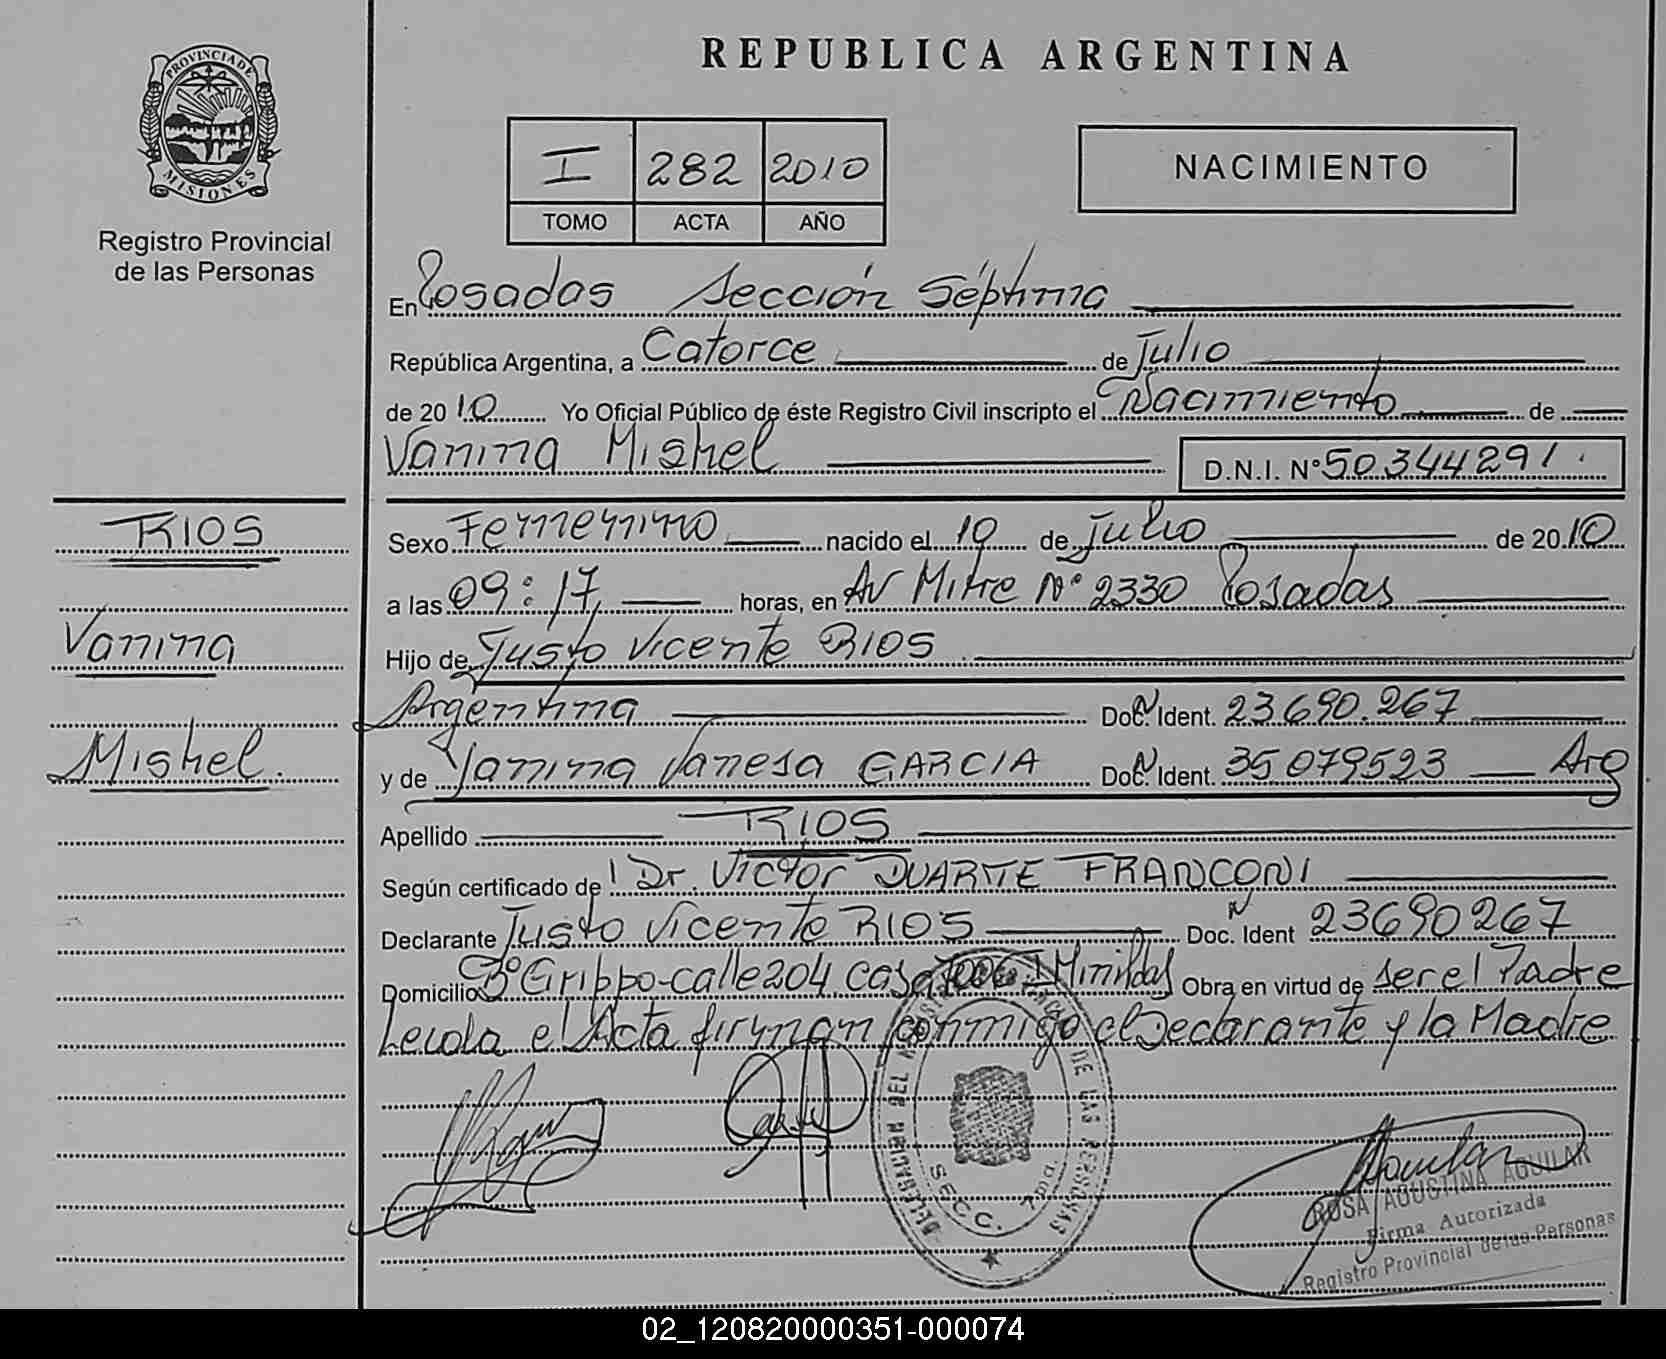 PROVINCIA DE
MISIONES
Registro Provincial
de las Personas
REPUBLICA ARGENTINA
I 282 2010
TOMO ACTA AÑO
NACIMIENTO
En Posadas Sección Séptima
República Argentina, a Catorce de Julio
de 2010 Yo Oficial Público de éste Registro Civil inscripto el Nacimiento de
Vanina Mishel D.N.I. N° 50344291
RIOS
Vanina
Mishel.
Sexo Femenino nacido el 10 de Julio de 2010
a las 09:17 horas, en Av Mitre N° 2330 Posadas
Hijo de Justo Vicente RIOS
Argentina Doc. Ident. 23.690.267
y de Yanina Vanesa GARCIA Doc. Ident. 35079523 Arg
Apellido RIOS
Según certificado de Dr. Victor DUARTE FRANCONI
Declarante Justo Vicente RIOS Doc. Ident 23690267
Domicilio B° Grippo-calle 204 casa I Minildas Obra en virtud de ser el Padre
Leida el Acta firman conmigo el Declarante y la Madre
DE LAS PERSONAS
SECC. 7ma.
ROSA AGUSTINA AGUILAR
Firma Autorizada
Registro Provincial de las Personas
02_120820000351-000074